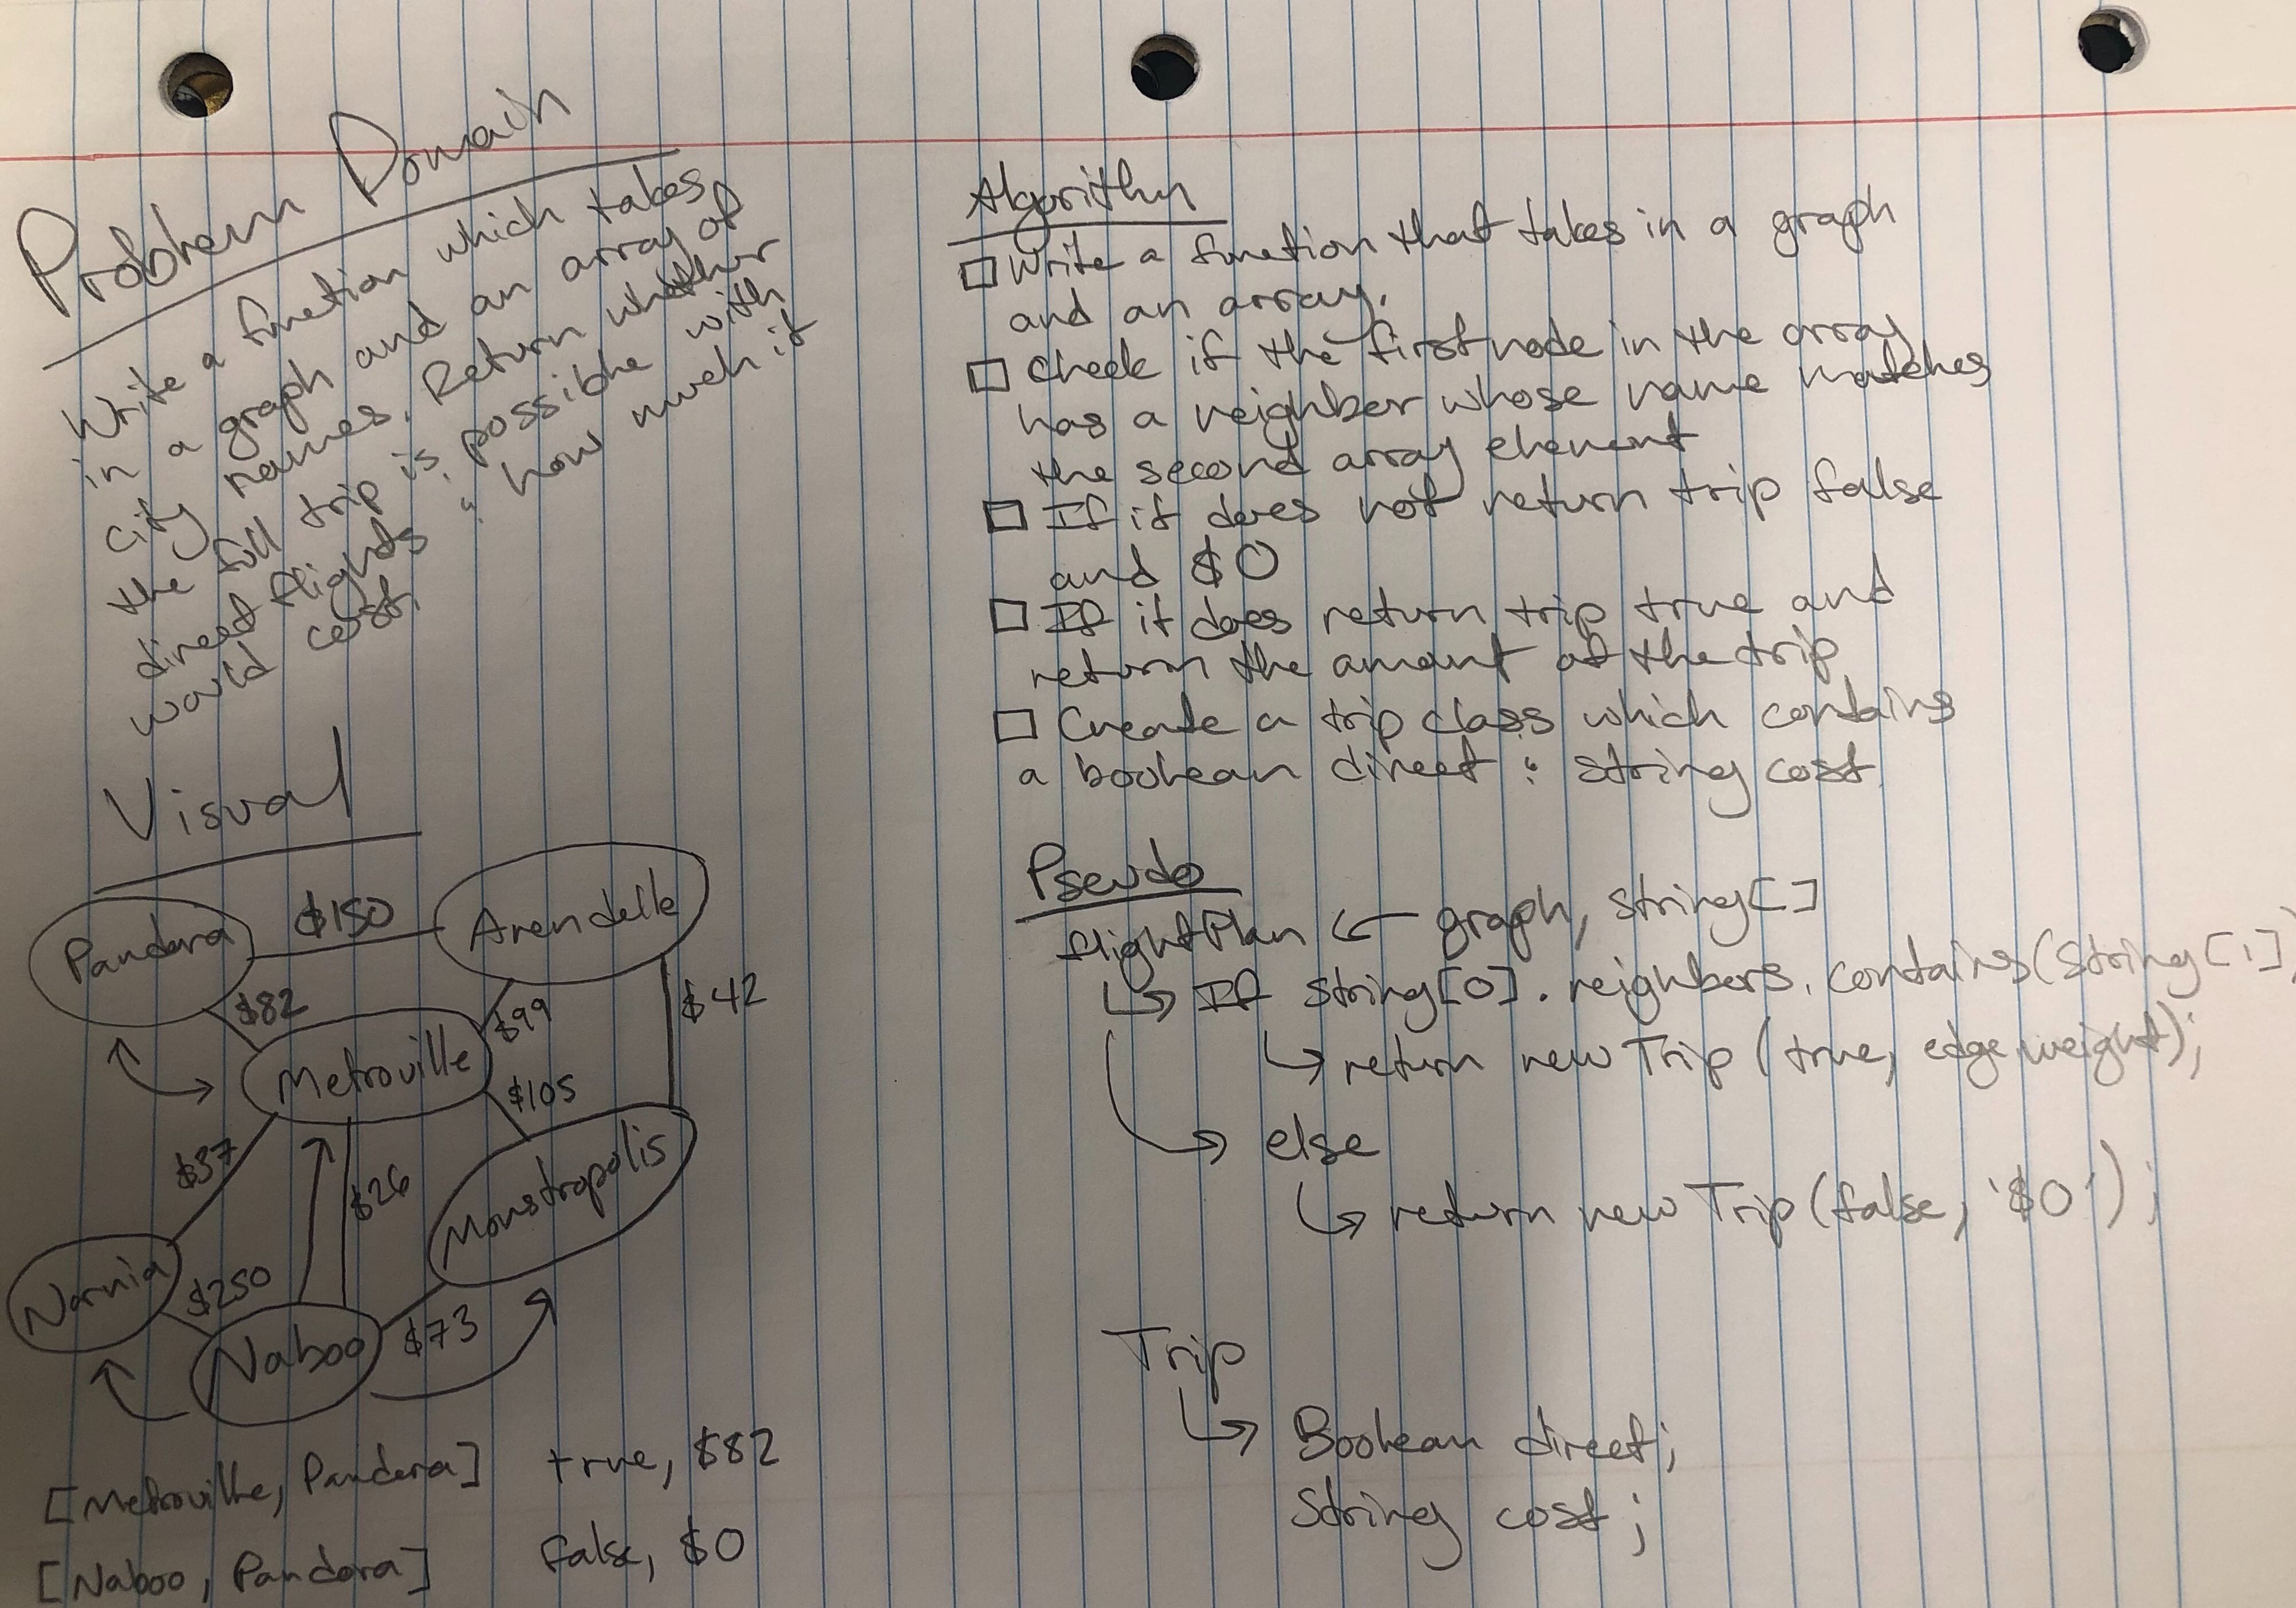 Problem Domain
Write a function which takes
in a graph and an array of
city names. Return whether
the full trip is possible with
direct flights & how much it
would cost.
Visual
Pandora
$150
Arendelle
$82
$99
$42
Metroville
$105
$37
$26
Monstropolis
Narnia
$250
Naboo
$73
[Metroville, Pandora] true, $82
[Naboo, Pandora] false, $0
Algorithm
Write a function that takes in a graph
and an array.
Check if the first node in the array
has a neighbor whose name matches
the second array element
If it does not return trip false
and $0
If it does return trip true and
return the amount of the trip
Create a trip class which contains
a boolean direct & string cost
Pseudo
flightPlan ← graph, string[]
↳ If string[0].neighbors.contains(string[1])
↳ return new Trip (true, edge.weight);
↳ else
↳ return new Trip (false, '$0');
Trip
↳ Boolean direct;
String cost;